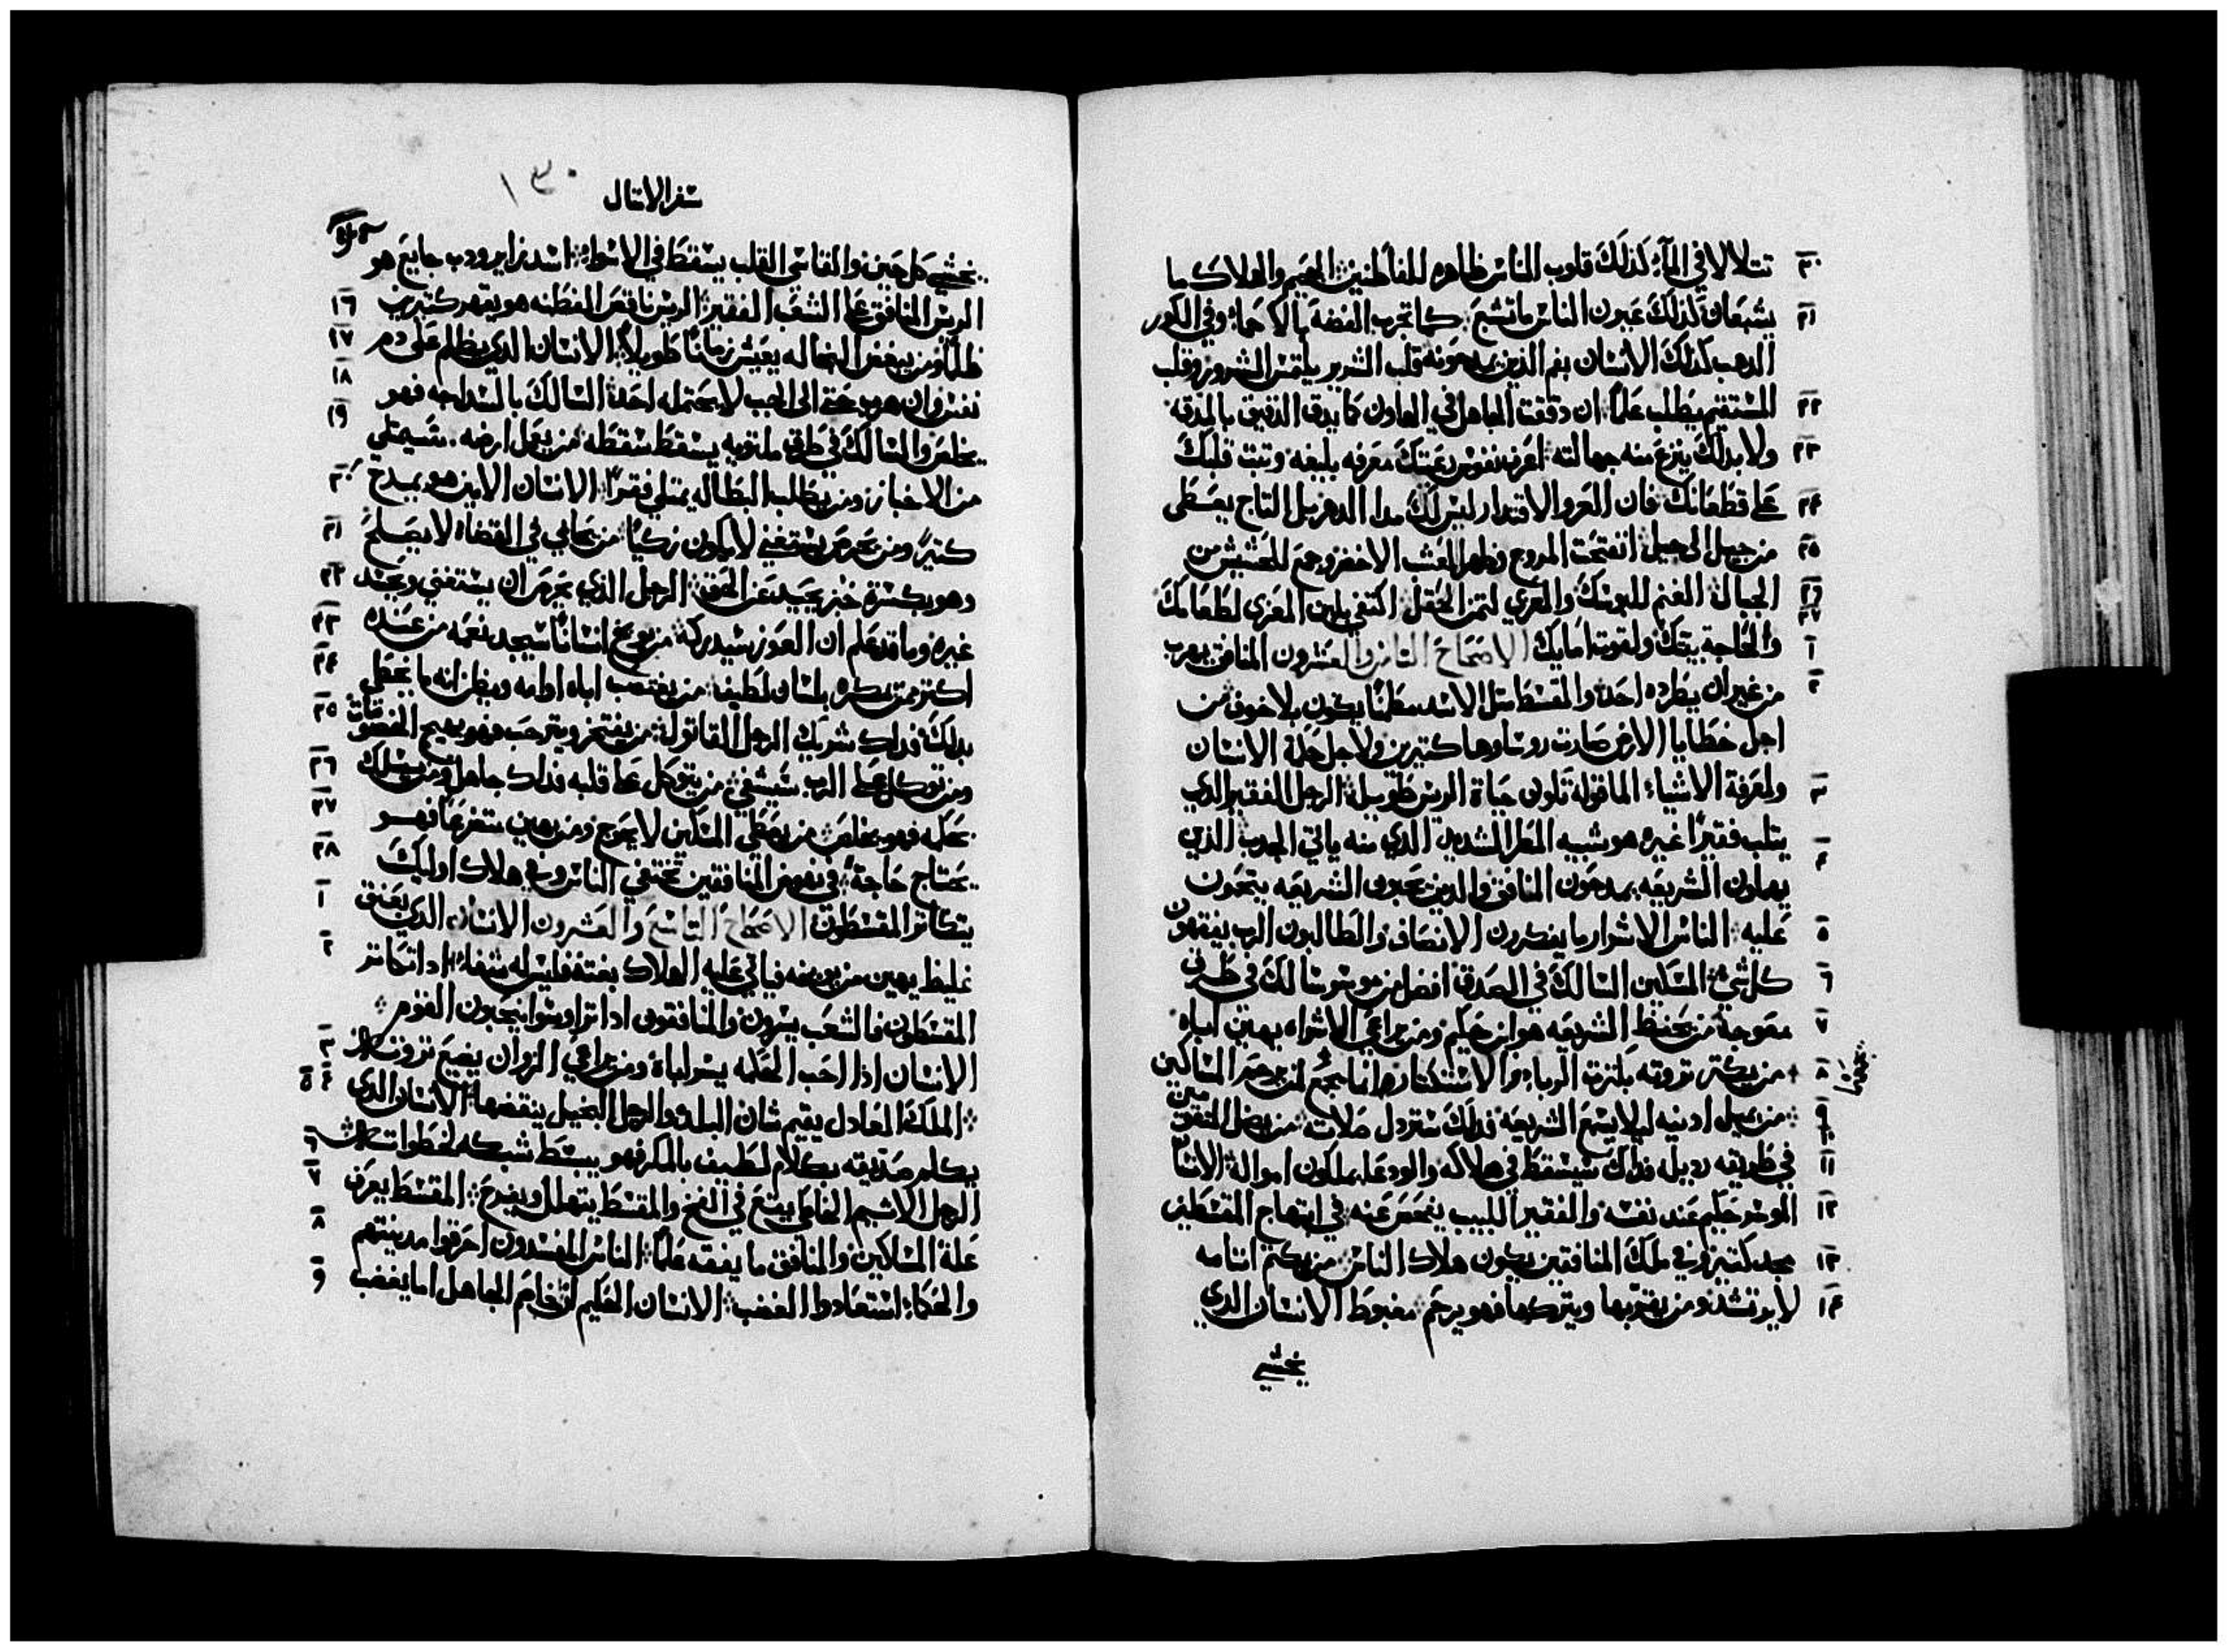 ٢٠ تتلالا في الماء كذلك قلوب الناس ظاهره للفاطنين الجحيم والهلاك ما
٢١ يشبعان كذلك عيون الناس ما تشبع كما تجرب الفضه بالاحماء وفي الكور
الدهب كذلك الانسان بفم الذين يمدحونه قلب الشرير يلتمس الشرور وقلب
٢٢ المستقيم يطلب علما ان دققت الجاهل في الهاون كما يدق الدقيق بالمدقه
٢٣ ولا بدلك ينزع منه جهالته اعرف نفوس رعيتك معرفه بليغه وتبت قلبك
٢٤ على قطعانك فان العز والاقتدار ليس لك مدا الدهر بل التاج يعطى
٢٥ من جيل الى جيل انفتحت المروج وظهر العشب الاخضر وجمع الحشيش من
٢٦ الجبال الغنم للبوسك والمعزي لتمن الحقل اكتفي بلبن المعزى لطعامك
٢٧
١ والحاجة بيتك ولقوت امايك الاصحاح الثامن والعشرون المنافق يهرب
٢ من غير ان يطرده احد والمقسط متل الاسد مطمنا يكون بلا خوف من
اجل خطايا الارض صارت روساوها كتيرين ولاجل حكمة الانسان
٣ ولمعرفة الاشياء الماقوله تكون حياة الريس طويله الرجل الفقير الدي
٤ يتلب فقيرا غيره هو شبيه المطر الشديد الدي منه ياتي الجدب الذين
يهملون الشريعه يمدحون المنافق والدين يحبون الشريعه يتحمون
٥ عليه الناس الاشرار ما يفكرون الانصاف والطالبون الرب يفقهون
٦ كل شي المسكين السالك في الصدق افضل من موسر سالك في طرق
٧ معوجة من يحفظ الشريعه هو ابن حكيم ومن يراعي الاشراه يهين اباه
٨ من يكتر تروته بكترت الرباء والاستكتار انما يجمع لمن يرحم المساكين
٩ من يميل ادنيه ليلا يسمع الشريعه فدلك ستردل صلاته من يضل المستقيمين
١٠
١١ في طريقه رديله فداك سيسقط في هلاكه والودعا يملكون امواله الانسان
١٢ الموسر حكيم عند نفسه والفقير اللبيب يفحص عنه في ابتهاج المقسطين
١٣ مجد كتير وفي ملك المنافقين يكون هلاك الناس من يكتم اتامه
١٤ لا يرتشد ومن يقر بها ويتركها فهو يرحم مغبوط الانسان الدي
يخشي
سفر الامتال
١٣٠
يخشي كل حين والقاسي القلب يسقط في الاسواء اسد زاير ودب جايع هو
١٦ الريس المنافق على الشعب الفقير الريس ناقص الفطنه هو يقهر كتيرين
١٧ ظلما ومن يبغض البخاله يعيش زمانا طويلا الانسان الدي يظلم على دم
١٨ نفس وان هرب حتى الى الجب لا يحتمله احد السالك بالسداجه فهو
١٩ يخلص والسالك في طرق ملتويه يسقط سقطه من يعمل ارضه سيمتلي
٢٠ من الاخباز ومن يطلب البطاله يمتلي فقرا الانسان الامين هو يمدح
٢١ كتيرا ومن يحرص يستغني لا يكون زكيا من يحابي في القضاء لا يصلح
٢٢ وهو بكسرة خبز يحيد عن الحق الرجل الذي يحرص ان يستغني ويحسد
٢٣ غيره وما قد علم ان العوز سيدركه من يوبخ انسانا سيجد نعمه من عنده
٢٤ اكتر ممن يمكره بلسان لطيف من يغتصب اباه او امه ويظن انه ما يخطي
٢٥ بدلك فداك شريك الرجل القاتول من يفتخر ويترحب فهو يهيج الخصومات
٢٦ ومن توكل على الرب سيشفى من يتوكل على قلبه فداك جاهل ومن يسلك
٢٧ بحكمه فهو يخلص من يعطي المسكين لا يحوج ومن يهين متضرعا فهو
٢٨ يحتاج حاجة في نهوض المنافقين تختفي الناس وفي هلاك اوليك
١ يتكاتر المقسطون الاصحاح التاسع والعشرون الانسان الدي بعنق
٢ غليظ يهين من يوبخه فياتي عليه الهلاك بغته فليس له شفاء ادا تكاتر
المقسطون فالشعب يسرون والمنافقون ادا تراوسوا ينتحبون القوم
٣ الانسان اذا احب الحكمه يسر اباه ومن يراعي الزوان يضيع تروته
٤ ٥ الملك العادل يقيم شان البلد والرجل البخيل ينقضها الانسان الدي
٦ يكلم صديقه بكلام لطيف بالمكر فهو يبسط شبكه لخطواته
٧ الرجل الاثيم الخاطي يقع في الفخ والمقسط يتهلل ويفرح المقسط يعرف
٨ علة المساكين والمنافق ما يفقه علما الناس المفسدون احرقوا مدينتهم
٩ والحكماء استعادوا الغضب الانسان الحكيم ان خاصم الجاهل اما يغضب